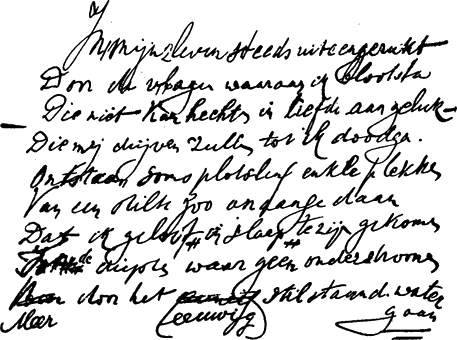 In mijn leven steeds uiteengerukt
Door de vlagen waaraan ik blootsta
Die niet kan hechten in liefde aan geluk –
Die mij drijven zullen tot ik doodga.
Ontstaan soms plotsling enkle plekken
Van een stilte zoo onaangedaan
Dat ik geloof in slaap te zijn gekomen
de diepte waar geen onderstroomen
door het stilstaand water
Meer (eeuwig) gaan